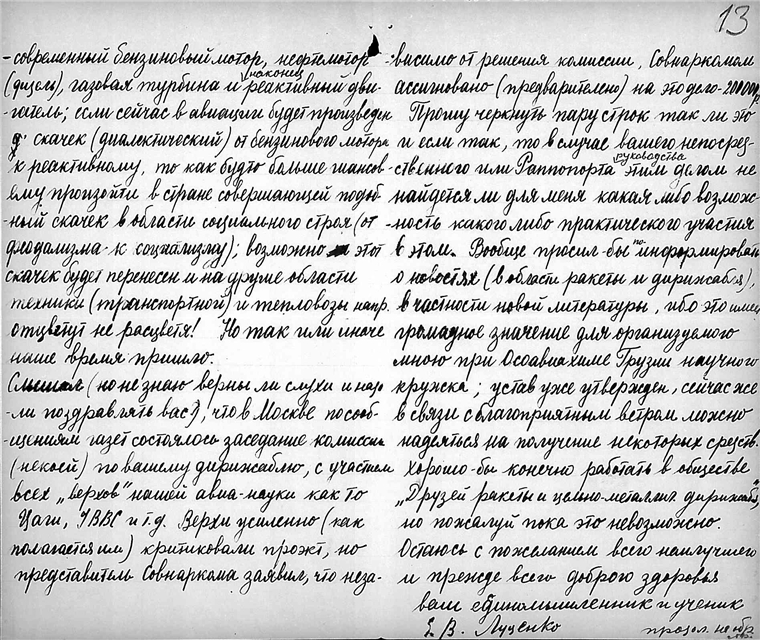 13
-современный бензиновый мотор, нефтемотор
(дизель), газовая турбина и наконец реактивный дви-
-гатель; если сейчас в авиации будет произведен
скачек (диалектический) от бензинового мотора
к реактивному, то как будто больше шансов
ему произойти в стране совершающей подоб-
-ный скачек в области социального строя (от
феодализма - к социализму); возможно этот
скачек будет перенесен и на другие области
техники (транспортной) и тепловозы напр.
отцветут не расцветя! Но так или иначе
наше время пришло.
Слышал (но не знаю верны ли слухи и надо
-ли поздравлять вас?), что в Москве по сооб-
-щениям газет состоялось заседание комиссии
(некоей) по вашему дирижаблю, с участием
всех „верхов" нашей авиа-науки как то
Цаги, УВВС и т.д. Верхи усиленно (как
полагается им) критиковали проэкт, но
представитель Совнаркома заявил, что неза-
-висимо от решения комиссии, Совнаркомом
ассигновано (предварительно) на это дело - 200000р.
Прошу черкнуть пару строк так ли это
и если так, то в случае вашего непосред-
-ственного или Раппопорта руководства этим делом не
найдется ли для меня какая либо возмож-
-ность какого либо практического участия
в этом. Вообще просил-бы по-информировать
о новостях (в области ракеты и дирижабля),
в частности новой литературы, ибо это имеет
громадное значение для организуемого
мною при Осоавиахиме Грузии научного
кружка; устав уже утвержден, сейчас же
в связи с благоприятным ветром можно
надеяться на получение некоторых средств.
Хорошо-бы конечно работать в обществе
„Друзей ракеты и цельно-металлич. дирижабля",
но пожалуй пока это невозможно.
Остаюсь с пожеланием всего наилучшего
и прежде всего доброго здоровья
ваш единомышленник и ученик
Е. В. Луценко
продол. на обр.